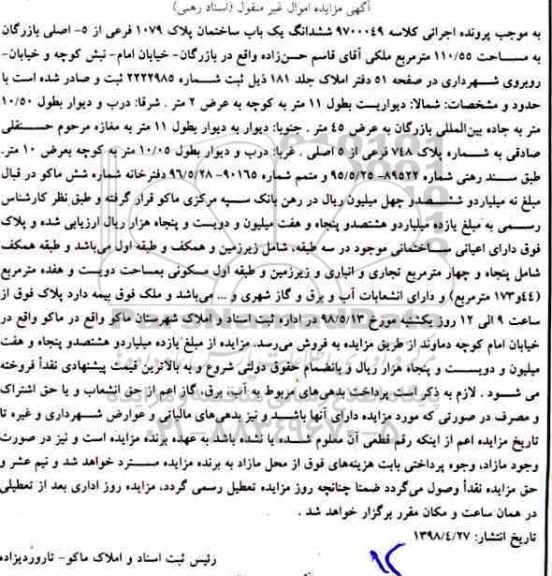 آگهی مزایده اموال غیر منقول (اسناد رهنی)
به موجب پرونده اجرائی کلاسه ۹۷۰۰۰۴۹ ششدانگ یک باب ساختمان پلاک ۱۰۷۹ فرعی از ۵- اصلی بازرگان
به مساحت ۱۱۰/۵۵ مترمربع ملکی آقای قاسم حسن‌زاده واقع در بازرگان- خیابان امام- نبش کوچه و خیابان-
روبروی شهرداری در صفحه ۵۱ دفتر املاک جلد ۱۸۱ ذیل ثبت شماره ۲۲۲۲۹۸۵ ثبت و صادر شده است با
حدود و مشخصات: شمالا: دیواریست بطول ۱۱ متر به کوچه به عرض ۲ متر . شرقا: درب و دیوار بطول ۱۰/۵۰
متر به جاده بین‌المللی بازرگان به عرض ۴۵ متر . جنوبا: دیوار به دیوار بطول ۱۱ متر به مغازه مرحوم حسنقلی
صادقی به شماره پلاک ۷۴۸ فرعی از ۵ اصلی . غربا: درب و دیوار بطول ۱۰/۰۵ متر به کوچه بعرض ۱۰ متر.
طبق سند رهنی شماره ۸۹۵۲۲- ۹۵/۵/۲۵ و متمم شماره ۹۰۱۶۵- ۹۶/۵/۲۸ دفترخانه شماره شش ماکو در قبال
مبلغ نه میلیاردو ششصدو چهل میلیون ریال در رهن بانک سپه مرکزی ماکو قرار گرفته و طبق نظر کارشناس
رسمی به مبلغ یازده میلیاردو هشتصدو پنجاه و هفت میلیون و دویست و پنجاه هزار ریال ارزیابی شده و پلاک
فوق دارای اعیانی ساختمانی موجود در سه طبقه، شامل زیرزمین و همکف و طبقه اول می‌باشد و طبقه همکف
شامل پنجاه و چهار مترمربع تجاری و انباری و زیرزمین و طبقه اول مسکونی بمساحت دویست و هفده مترمربع
(۴۴و۱۷۳ مترمربع) و دارای انشعابات آب و برق و گاز شهری و ... می‌باشد و ملک فوق بیمه دارد پلاک فوق از
ساعت ۹ الی ۱۲ روز یکشنبه مورخ ۹۸/۵/۱۳ در اداره ثبت اسناد و املاک شهرستان ماکو واقع در ماکو واقع در
خیابان امام کوچه دماوند از طریق مزایده به فروش می‌رسد. مزایده از مبلغ یازده میلیاردو هشتصدو پنجاه و هفت
میلیون و دویست و پنجاه هزار ریال و بانضمام حقوق دولتی شروع و به بالاترین قیمت پیشنهادی نقداً فروخته
می شود . لازم به ذکر است پرداخت بدهی‌های مربوط به آب، برق، گاز اعم از حق انشعاب و یا حق اشتراک
و مصرف در صورتی که مورد مزایده دارای آنها باشد و نیز بدهی‌های مالیاتی و عوارض شهرداری و غیره تا
تاریخ مزایده اعم از اینکه رقم قطعی آن معلوم شده یا نشده باشد به عهده برنده مزایده است و نیز در صورت
وجود مازاد، وجوه پرداختی بابت هزینه‌های فوق از محل مازاد به برنده مزایده مسترد خواهد شد و نیم عشر و
حق مزایده نقداً وصول می‌گردد ضمنا چنانچه روز مزایده تعطیل رسمی گردد، مزایده روز اداری بعد از تعطیلی
در همان ساعت و مکان مقرر برگزار خواهد شد .
تاریخ انتشار: ۱۳۹۸/۴/۲۷
رئیس ثبت اسناد و املاک ماکو- تاروردیزاده